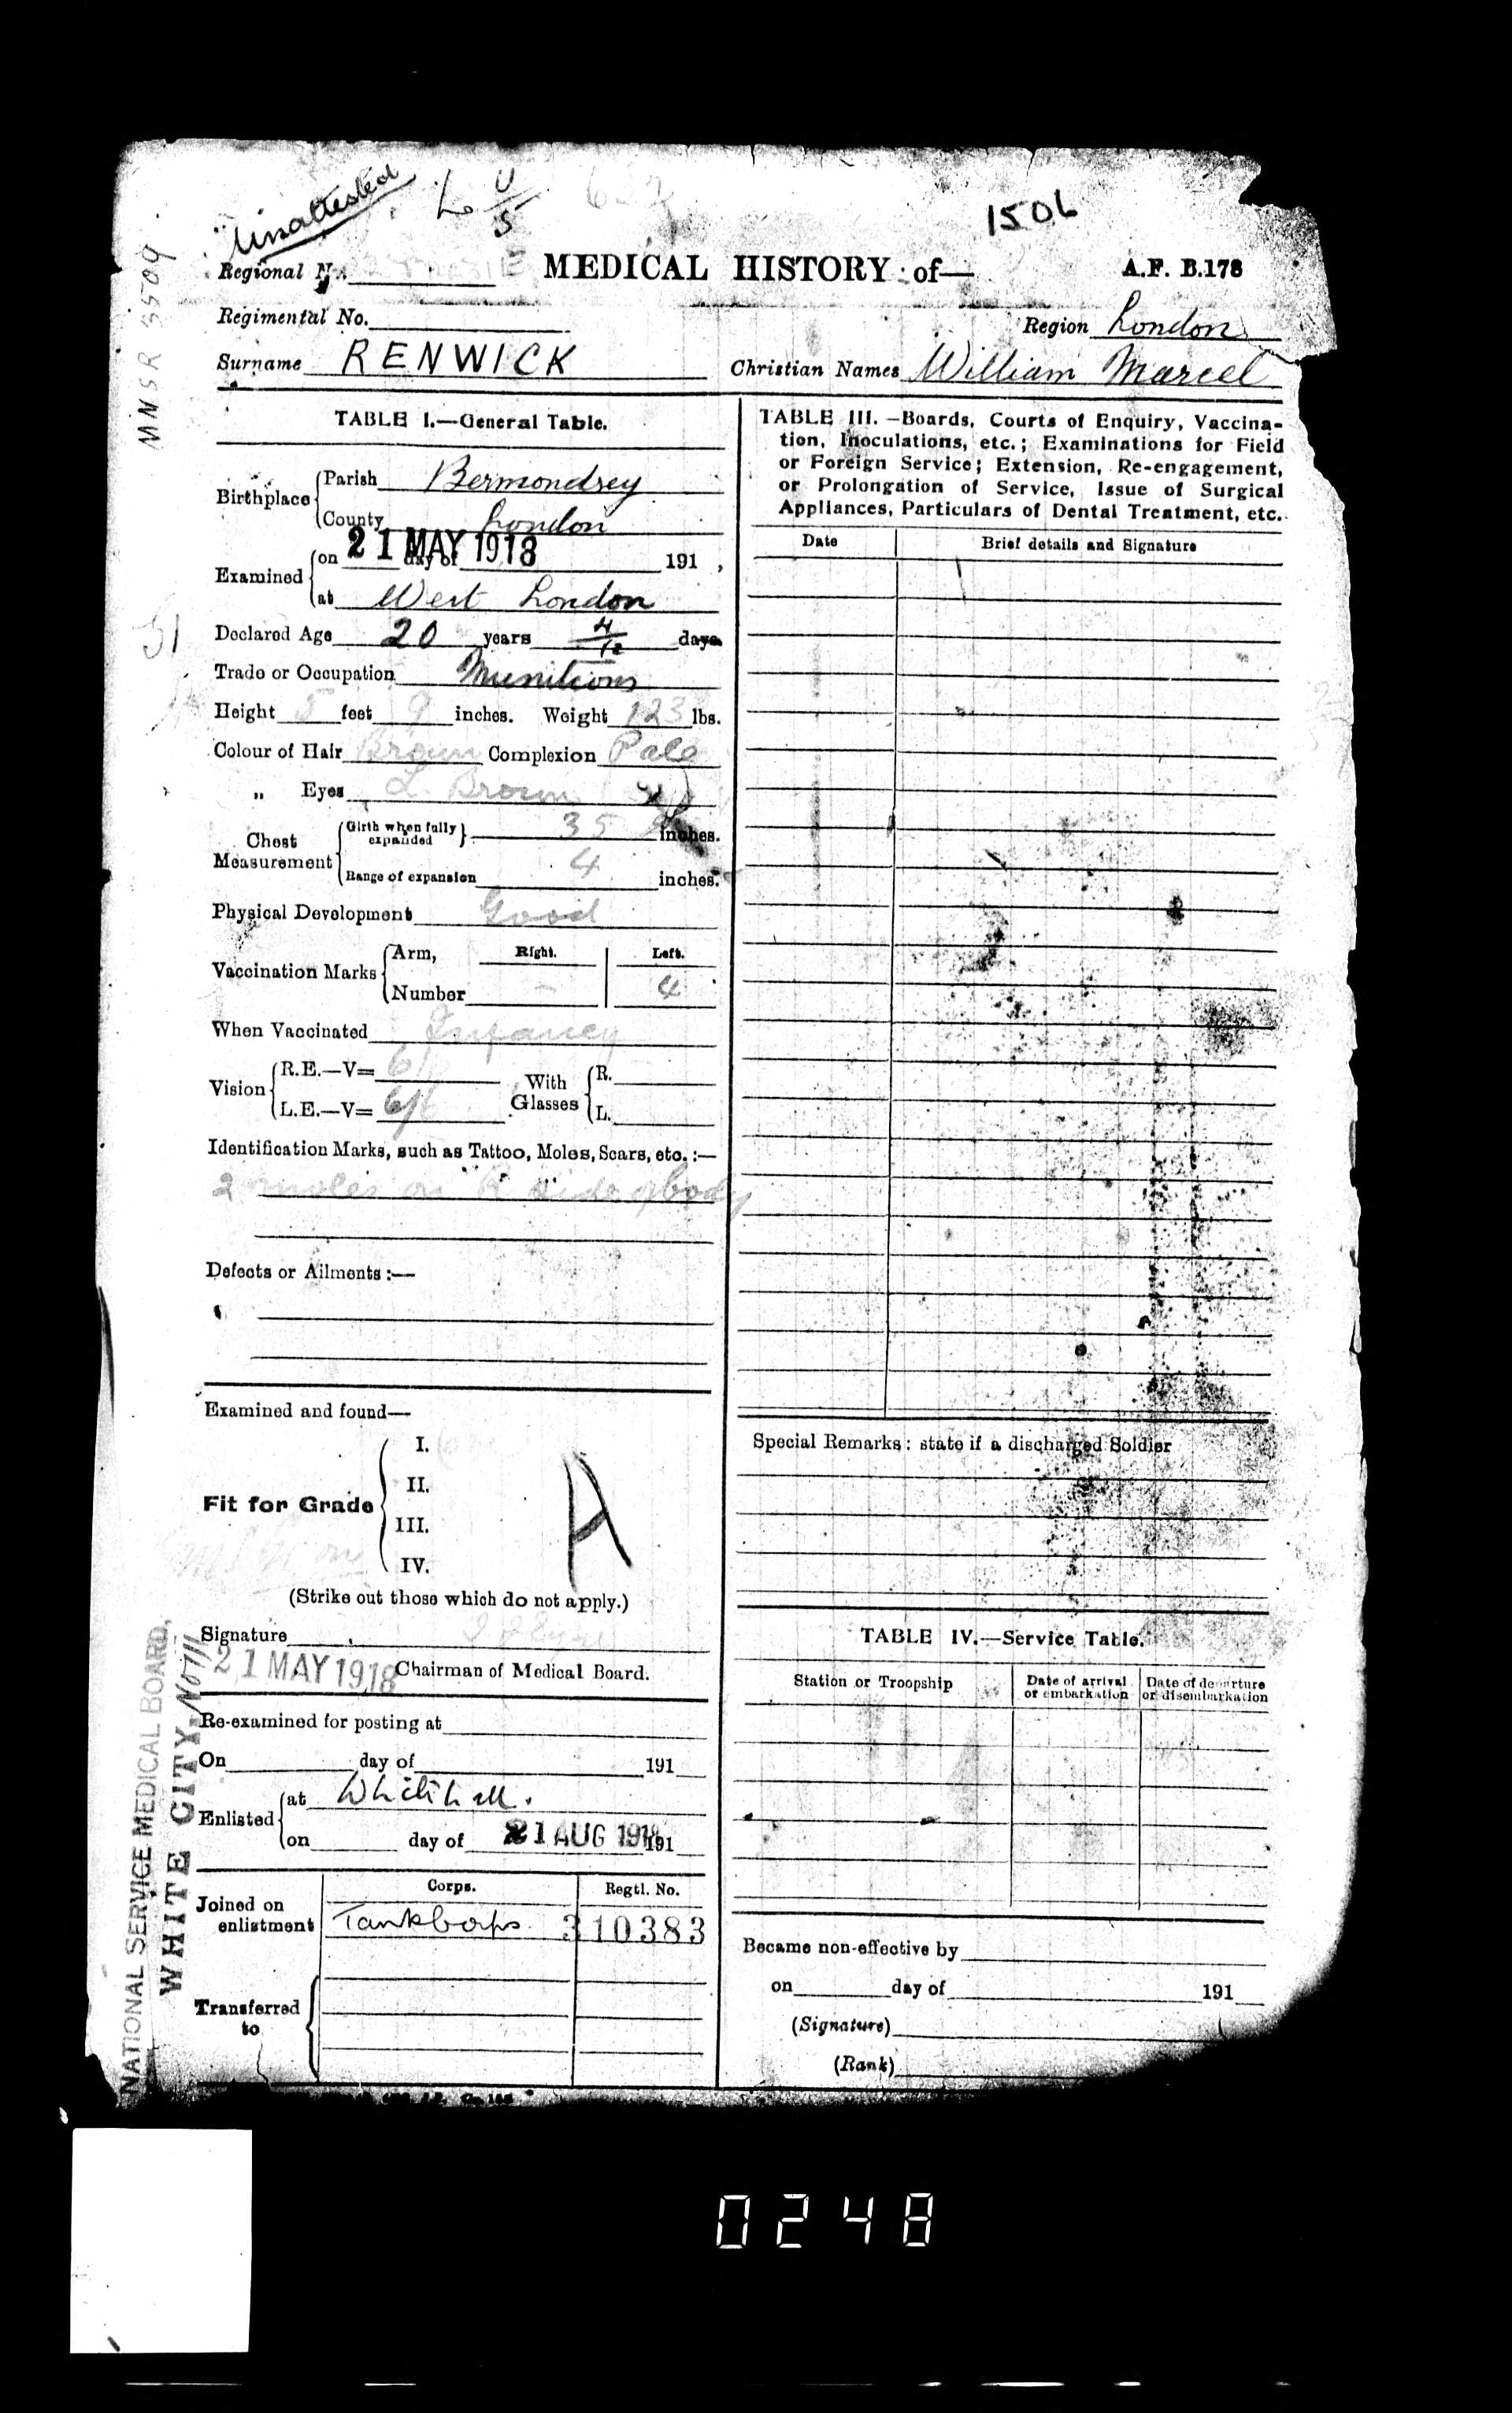 Unattested
L U/5
1506
MNSR 3509
Regional No.
MEDICAL HISTORY of—
A.F. B.178
Regimental No.
Region London
Surname RENWICK
Christian Names William Marcel
TABLE I.—General Table.
Birthplace
Parish Bermondsey
County London
Examined
on 21 MAY 1918 day of 191 ,
at West London
Declared Age 20 years 4/12 days.
Trade or Occupation Munitions
Height 5 feet 9 inches. Weight 123 lbs.
Colour of Hair Brown Complexion Pale
„ Eyes L. Brown
Chest Measurement
Girth when fully expanded 35 inches.
Range of expansion 4 inches.
Physical Development Good
Vaccination Marks
Arm, Right. Left.
Number — 4
When Vaccinated Infancy
Vision
R.E.—V= 6/6
L.E.—V= 6/6
With Glasses
R.
L.
Identification Marks, such as Tattoo, Moles, Scars, etc. :—
2 moles on R side of body
Defects or Ailments :—
Examined and found—
Fit for Grade
I.
II.
III.
IV.
A
(Strike out those which do not apply.)
Signature
21 MAY 1918
Chairman of Medical Board.
NATIONAL SERVICE MEDICAL BOARD,
WHITE CITY,
Re-examined for posting at
On day of 191
Enlisted
at Whitehall.
on day of 21 AUG 1918 191
Corps. Regtl. No.
Joined on enlistment Tank Corps 310383
Transferred to
TABLE III.—Boards, Courts of Enquiry, Vaccina-
tion, Inoculations, etc.; Examinations for Field
or Foreign Service; Extension, Re-engagement,
or Prolongation of Service, Issue of Surgical
Appliances, Particulars of Dental Treatment, etc.
Date Brief details and Signature
Special Remarks: state if a discharged Soldier
TABLE IV.—Service Table.
Station or Troopship
Date of arrival or embarkation
Date of departure or disembarkation
Became non-effective by
on day of 191
(Signature)
(Rank)
0248